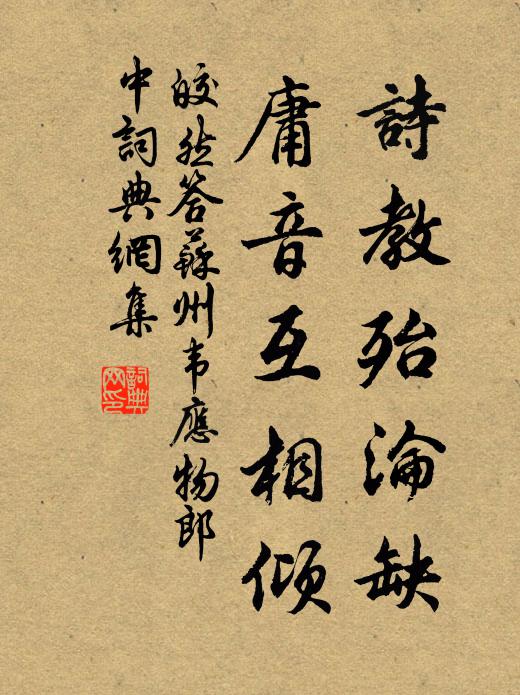 詩教殆淪缺
庸音互相傾
皎然答蘇州韦應物郎
中詞典網集
詞典
网印